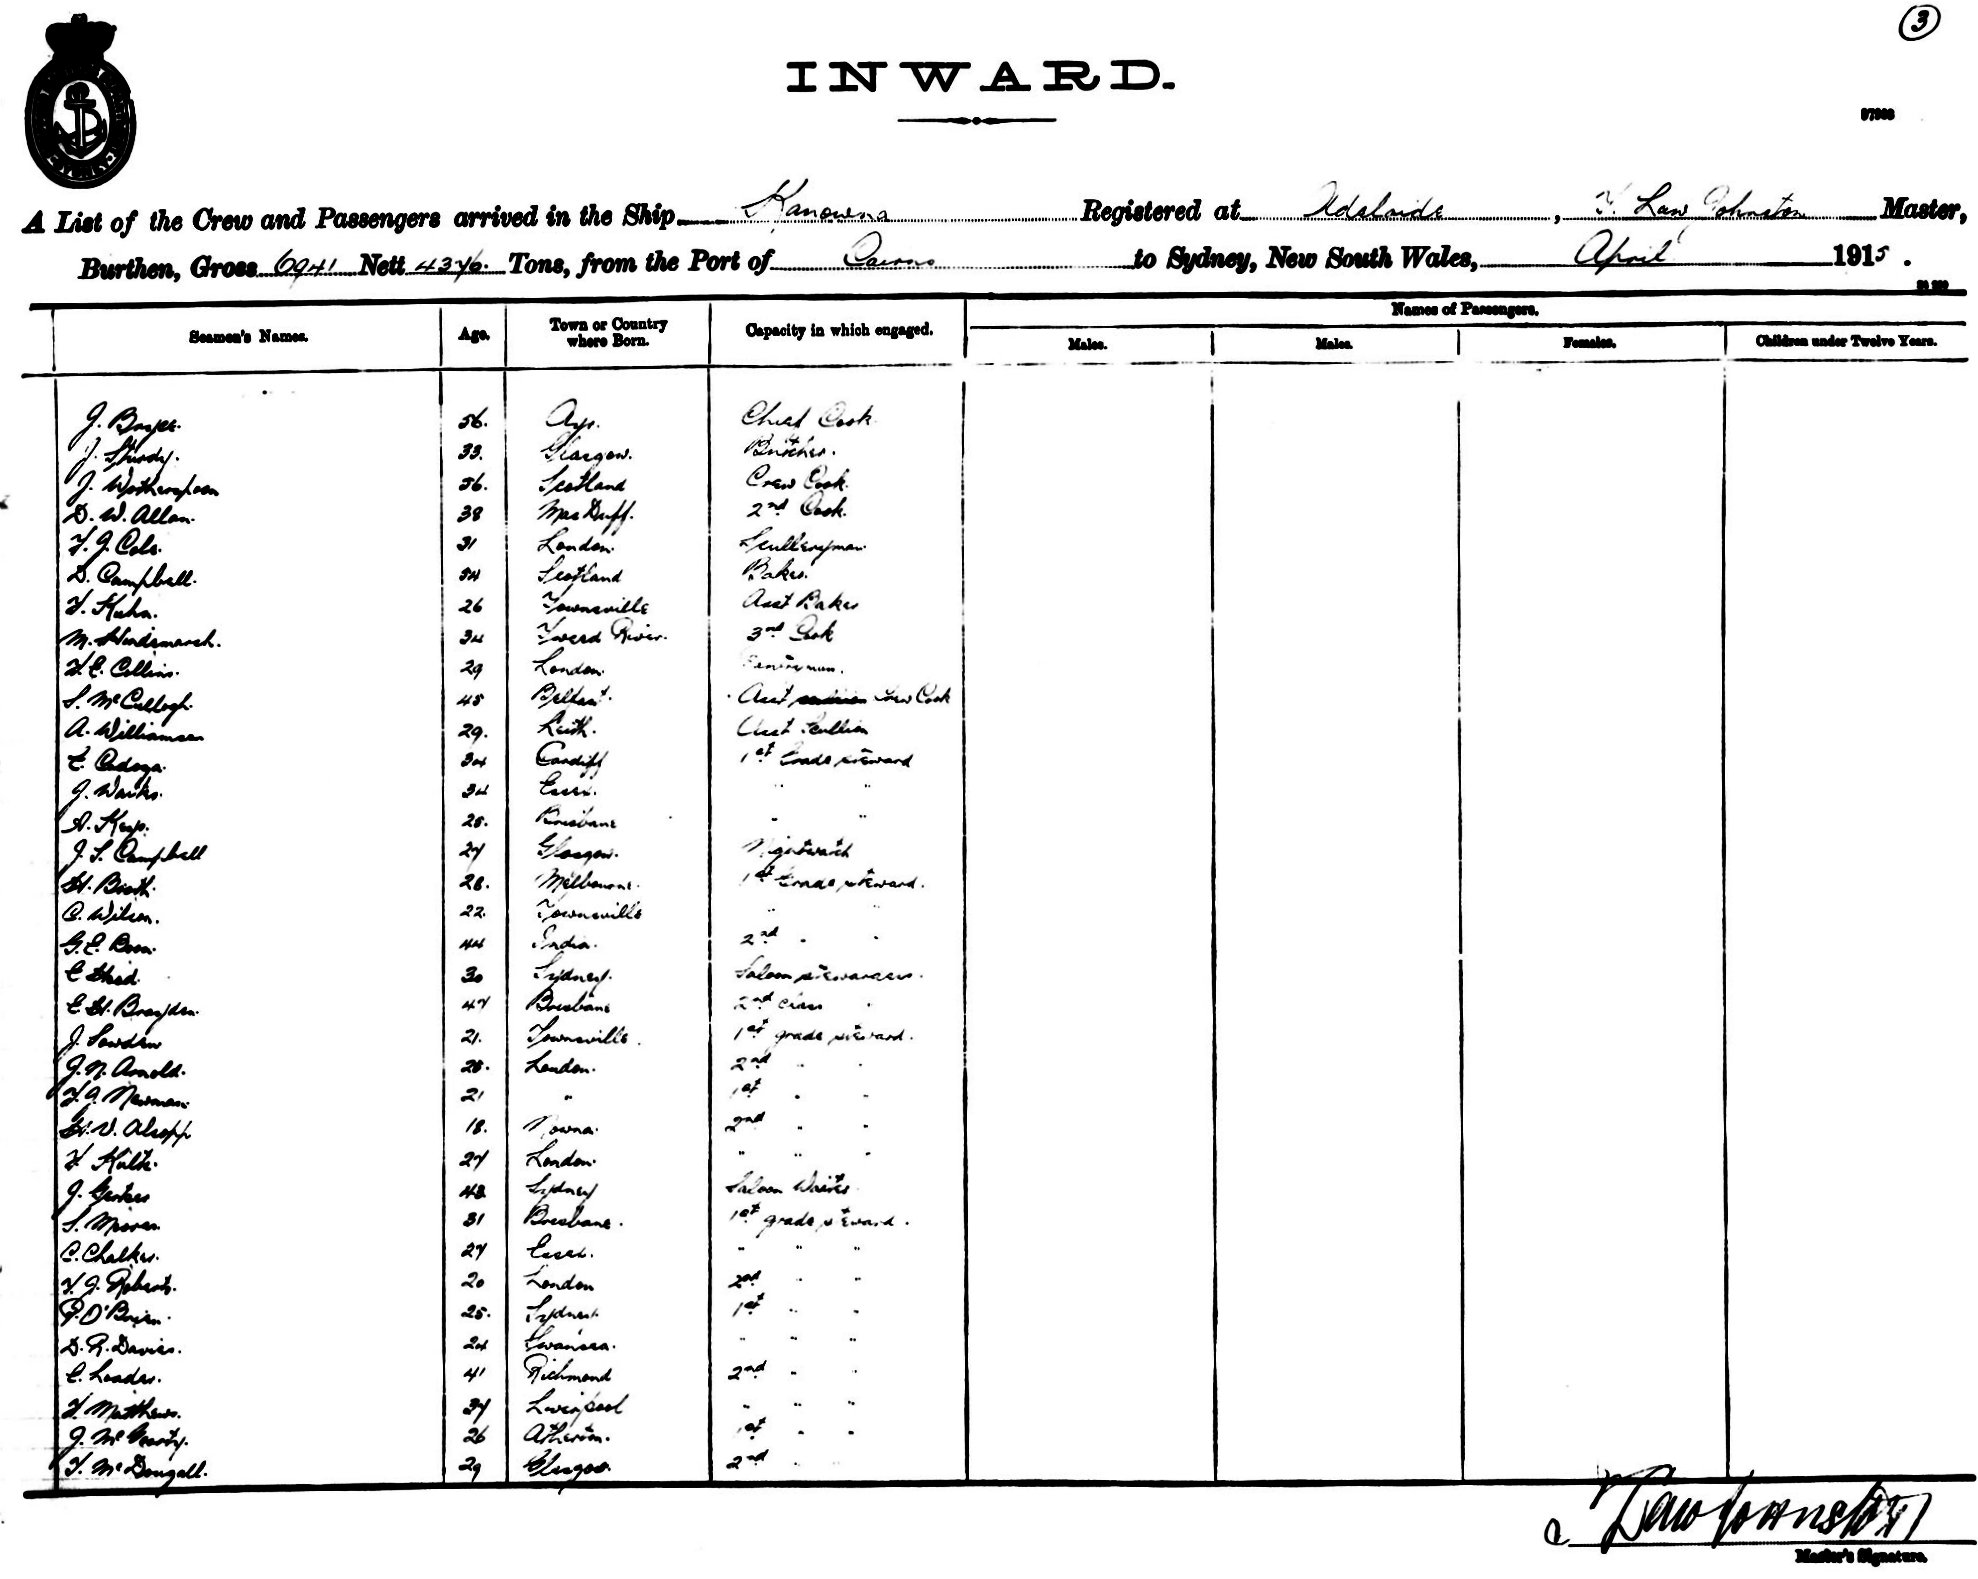 3
INWARD.
A List of the Crew and Passengers arrived in the Ship Kanowna Registered at Adelaide, T. Law Johnston Master,
Burthen, Gross 6941 Nett 4376. Tons, from the Port of Cairns to Sydney, New South Wales, April 1915.
Names of Passengers.
Seamen's Names. Age. Town or Country where Born. Capacity in which engaged. Males. Males. Females. Children under Twelve Years.
J. 56. Ayr. Chief Cook
J. Sturdy. 33. Glasgow. Butcher.
J. Wotherspoon 56. Scotland Crew Cook.
D. W. Allan. 38 MacDuff. 2nd Cook.
T. J. Cole. 31 London. Sculleryman
D. Campbell. 54 Scotland Baker.
T. Kuhn. 26 Townsville Asst Baker
M. Hindmarsh. 34 Tweed River. 3rd Cook
T. E. Collins. 29 London. Pantryman.
S. McCullogh. 45 Belfast. Asst Crew Cook
A. Williamson 29. Leith. Asst Scullion
E. 34 Cardiff 1st Grade steward
J. Warks. 34 Essex. " "
A. Keys. 25. Brisbane " "
J. S. Campbell 27 Glasgow. Nightwatch
H. Booth. 28. Melbourne. 1st Grade steward.
C. Wilson. 22. Townsville " "
G. E. Boon. 44 India. 2nd " "
E. Head. 30 Sydney. Saloon stewardess.
E. H. Brayden. 47 Brisbane 2nd class "
J. Sowden 21. Townsville. 1st grade steward.
J. N. Arnold. 28. London. 2nd " "
T. J. Newman. 21 " 1st " "
H. V. Alsopp 18. Nowra. 2nd " "
T. 27 London. " " "
J. 48 Sydney Saloon Waiter.
S. 31 Brisbane. 1st grade steward.
C. Chalker. 27 Essex. " " "
T. J. Roberts. 20 London 2nd " "
P. O'Brien. 25. Sydney. 1st " "
D. R. Davies. 24 Swansea. " " "
E. Loader. 41 Richmond 2nd " "
T. Matthews. 37 Liverpool " " "
J. McGearty. 26 Atherton. 1st " "
T. McDougall. 29 Glasgow. 2nd " "
T Law Johnston
Master's Signature.